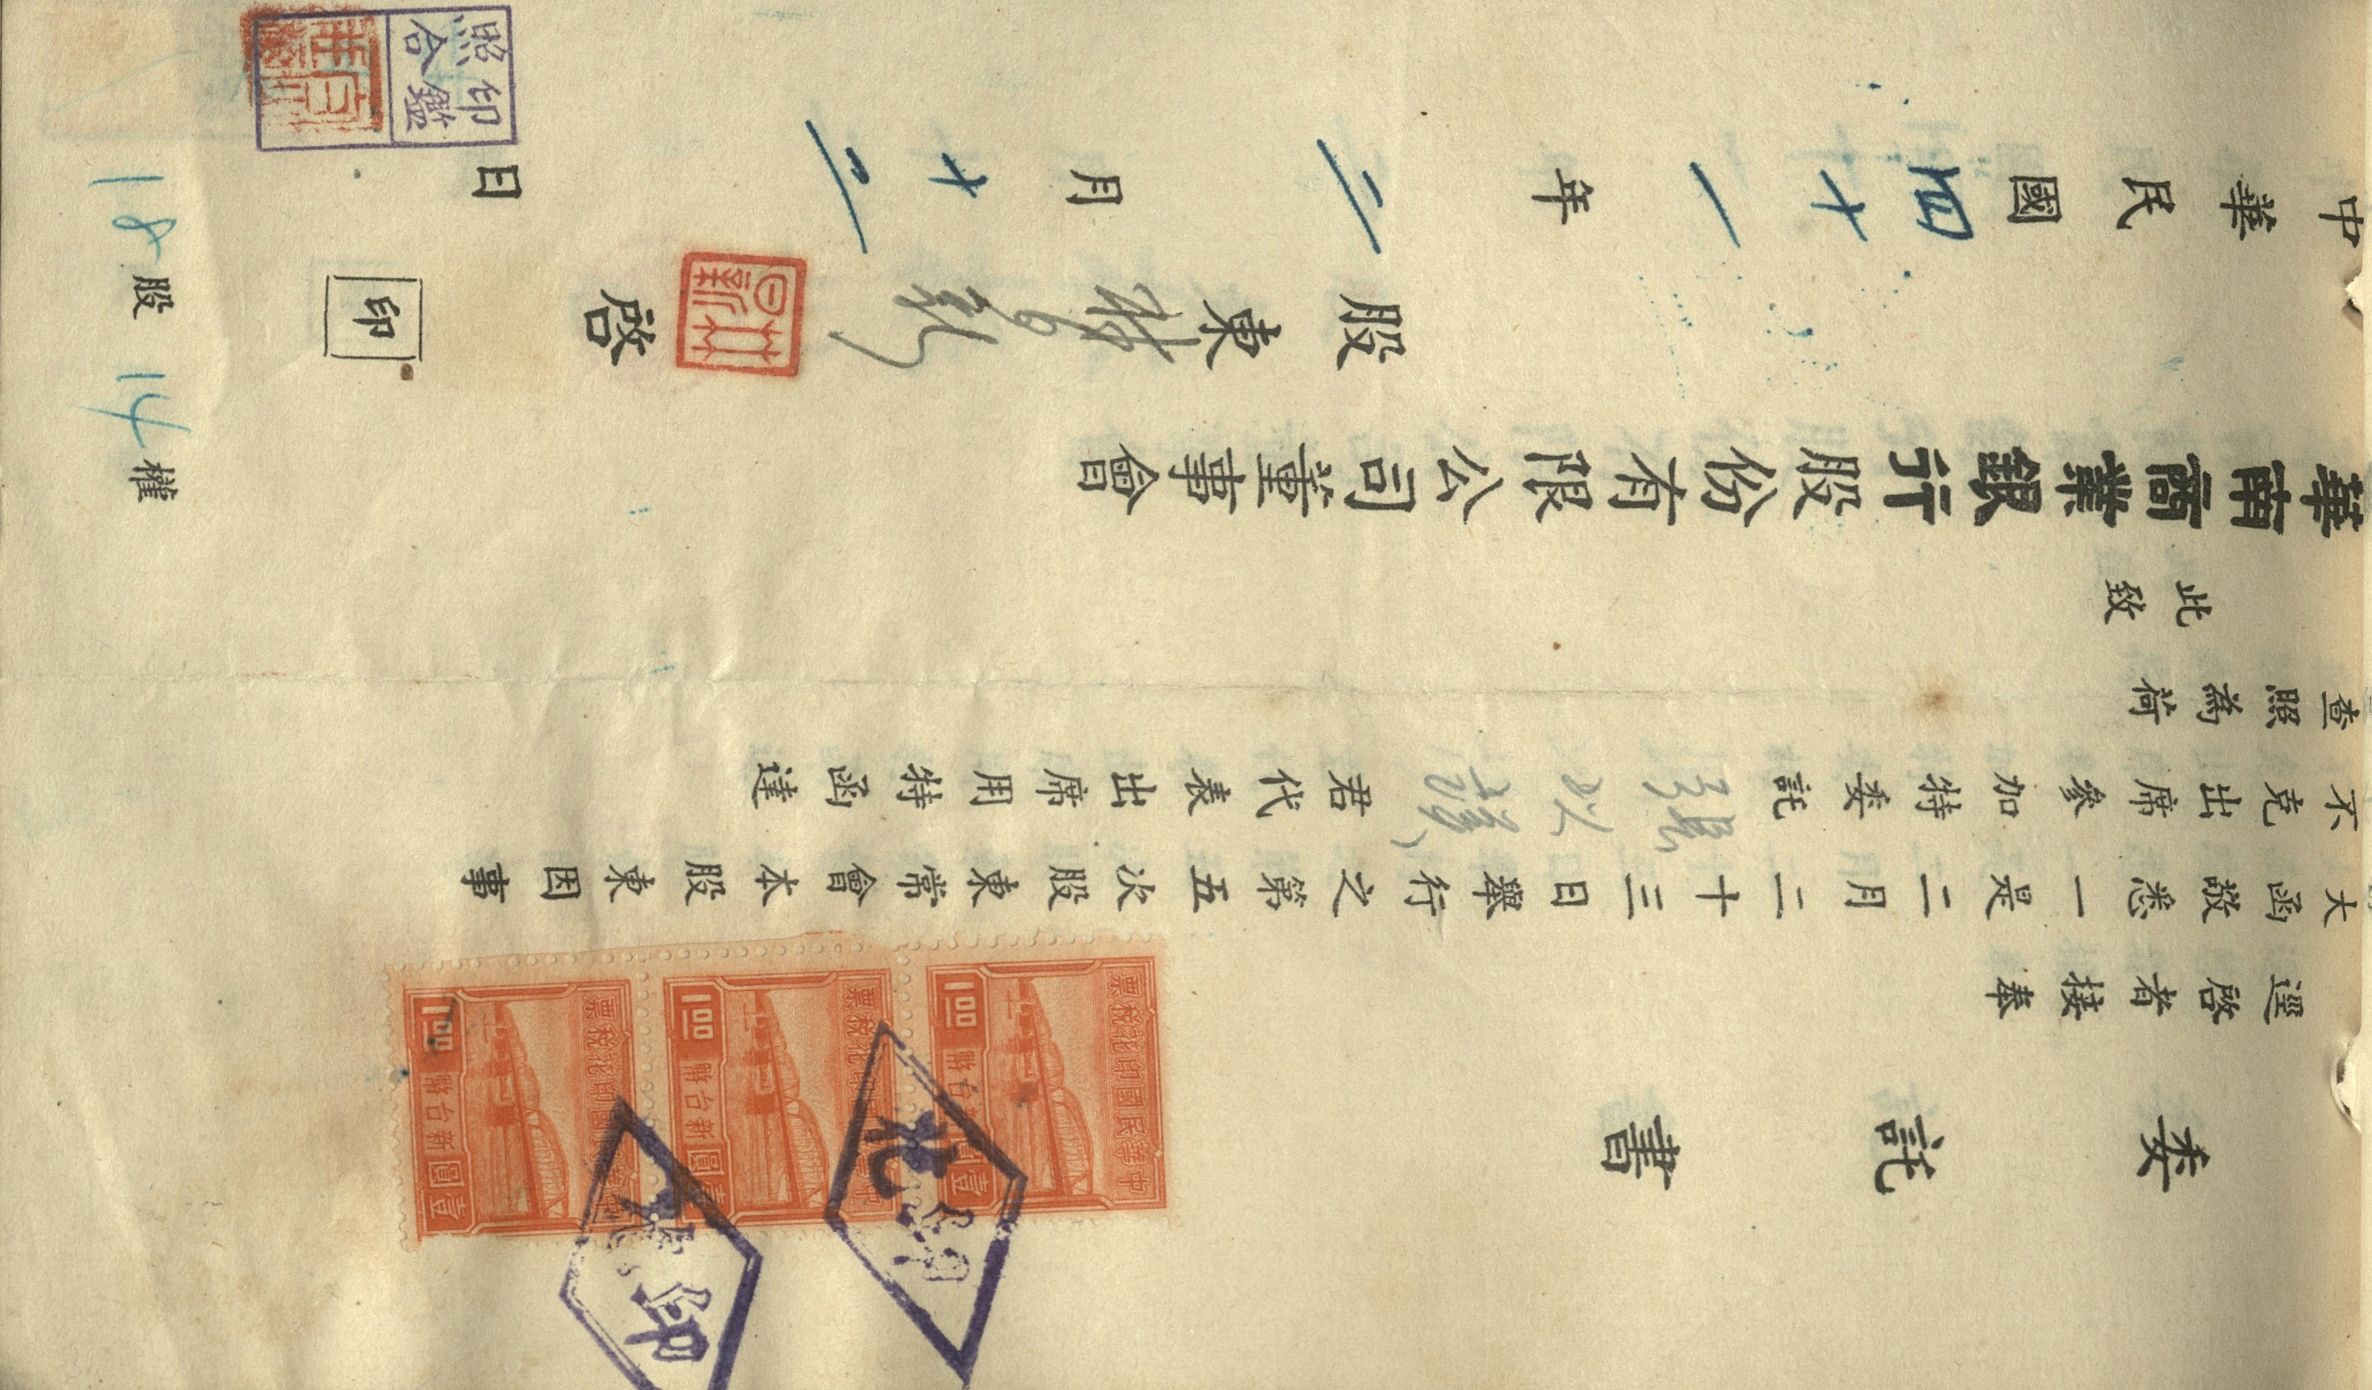 委託書
逕啓者接奉
大函敬悉一是二月二十三日舉行之第五次股東常會本股東因事
不克出席參加特委託張以謨君代表出席用特函達
查照為荷
此致
華南商業銀行股份有限公司董事會
股東林日新啓
印
中華民國四十一年二月十二日
18股 14權
林日新
印鑑
照合
中華民國印花稅票
壹圓
新台幣
1.00
中華民國印花稅票
壹圓
新台幣
1.00
中華民國印花稅票
壹圓
新台幣
1.00